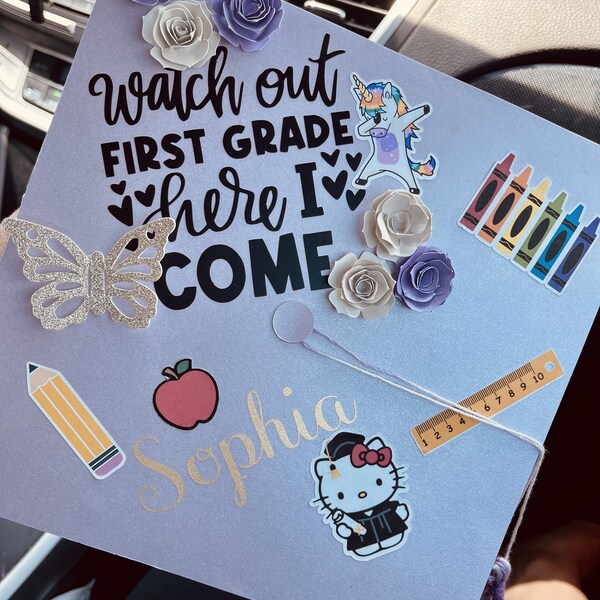 watch out
FIRST GRADE
here I
COME
1 2 3 4 5 6 7 8 9 10
Sophia